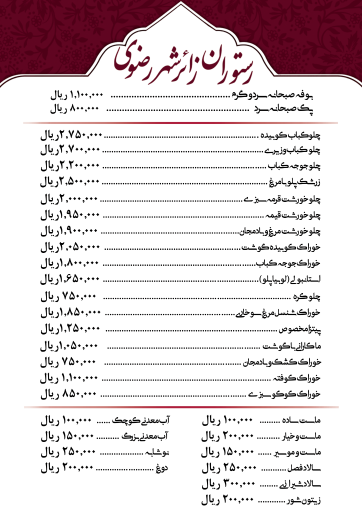 رستوران زائرشهر رضوی
بوفه صبحانه سرد و گرم ........ ۱,۱۰۰,۰۰۰ ریال
پک صبحانه سرد ........ ۸۰۰,۰۰۰ ریال
چلو کباب کوبیده ........ ۲,۷۵۰,۰۰۰ ریال
چلو کباب وزیری ........ ۲,۷۰۰,۰۰۰ ریال
چلو جوجه کباب ........ ۲,۲۰۰,۰۰۰ ریال
زرشک پلو با مرغ ........ ۲,۵۰۰,۰۰۰ ریال
چلو خورشت قرمه سبزی ........ ۲,۰۰۰,۰۰۰ ریال
چلو خورشت قیمه ........ ۱,۹۵۰,۰۰۰ ریال
چلو خورشت مرغ و بادمجان ........ ۱,۹۰۰,۰۰۰ ریال
خوراک کوبیده گوشت ........ ۲,۰۵۰,۰۰۰ ریال
خوراک جوجه کباب ........ ۱,۸۰۰,۰۰۰ ریال
استانبولی (لوبیاپلو) ........ ۱,۶۵۰,۰۰۰ ریال
چلو کره ........ ۷۵۰,۰۰۰ ریال
خوراک شنسل مرغ سوخاری ........ ۱,۸۵۰,۰۰۰ ریال
پیتزا مخصوص ........ ۱,۲۵۰,۰۰۰ ریال
ماکارانی با گوشت ........ ۱,۰۵۰,۰۰۰ ریال
خوراک کشک و بادمجان ........ ۷۵۰,۰۰۰ ریال
خوراک کوفته ........ ۱,۱۰۰,۰۰۰ ریال
خوراک کوکو سبزی ........ ۸۵۰,۰۰۰ ریال
ماست ساده ........ ۱۰۰,۰۰۰ ریال
ماست و خیار ........ ۲۰۰,۰۰۰ ریال
ماست و موسیر ........ ۱۵۰,۰۰۰ ریال
سالاد فصل ........ ۲۵۰,۰۰۰ ریال
سالاد شیرازی ........ ۳۰۰,۰۰۰ ریال
زیتون شور ........ ۲۰۰,۰۰۰ ریال
آب معدنی کوچک ........ ۱۰۰,۰۰۰ ریال
آب معدنی بزرگ ........ ۱۵۰,۰۰۰ ریال
نوشابه ........ ۲۵۰,۰۰۰ ریال
دوغ ........ ۲۰۰,۰۰۰ ریال